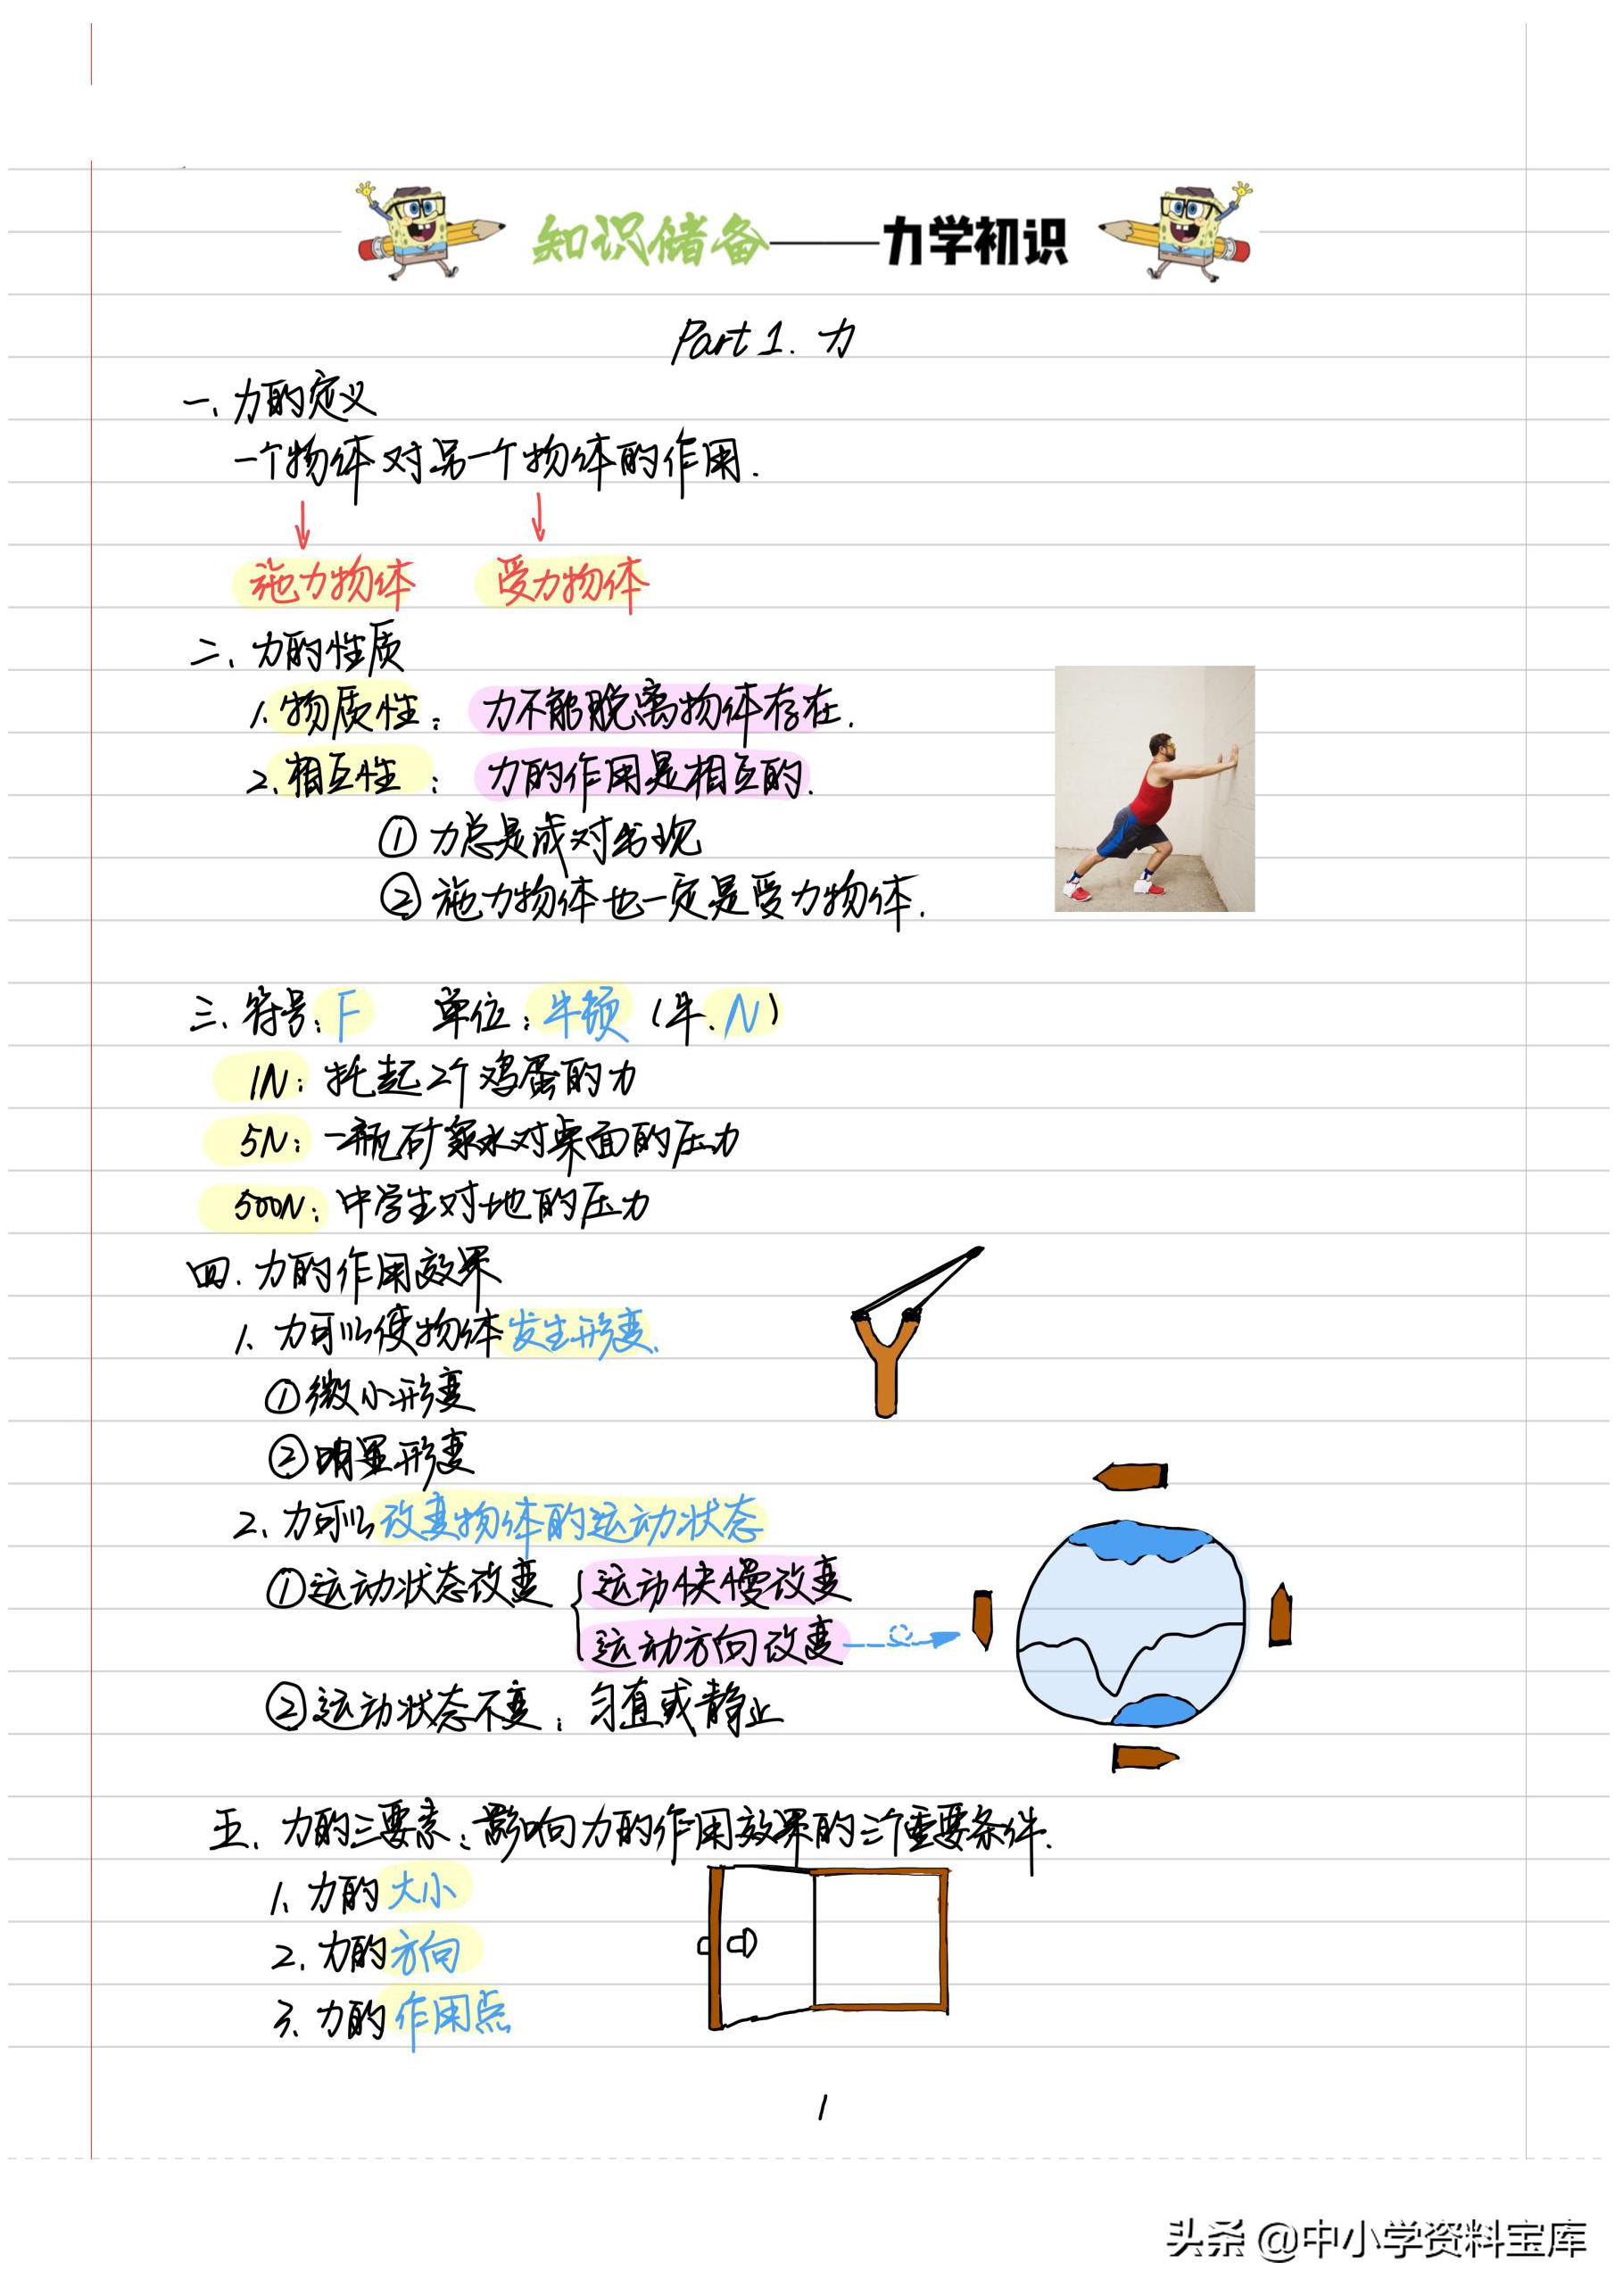 知识储备——力学初识
Part 1. 力
一、力的定义
一个物体对另一个物体的作用.
施力物体 受力物体
二、力的性质
1.物质性：力不能脱离物体存在.
2.相互性：力的作用是相互的.
①力总是成对出现
②施力物体也一定是受力物体.
三、符号：F 单位：牛顿（牛.N）
1N：托起2个鸡蛋的力
5N：一瓶矿泉水对桌面的压力
500N：中学生对地的压力
四、力的作用效果
1、力可以使物体发生形变.
①微小形变
②明显形变
2、力可以改变物体的运动状态
①运动状态改变 { 运动快慢改变
运动方向改变
②运动状态不变：匀直或静止
五、力的三要素：影响力的作用效果的三个重要条件.
1、力的大小
2、力的方向
3、力的作用点
1
头条 @中小学资料宝库